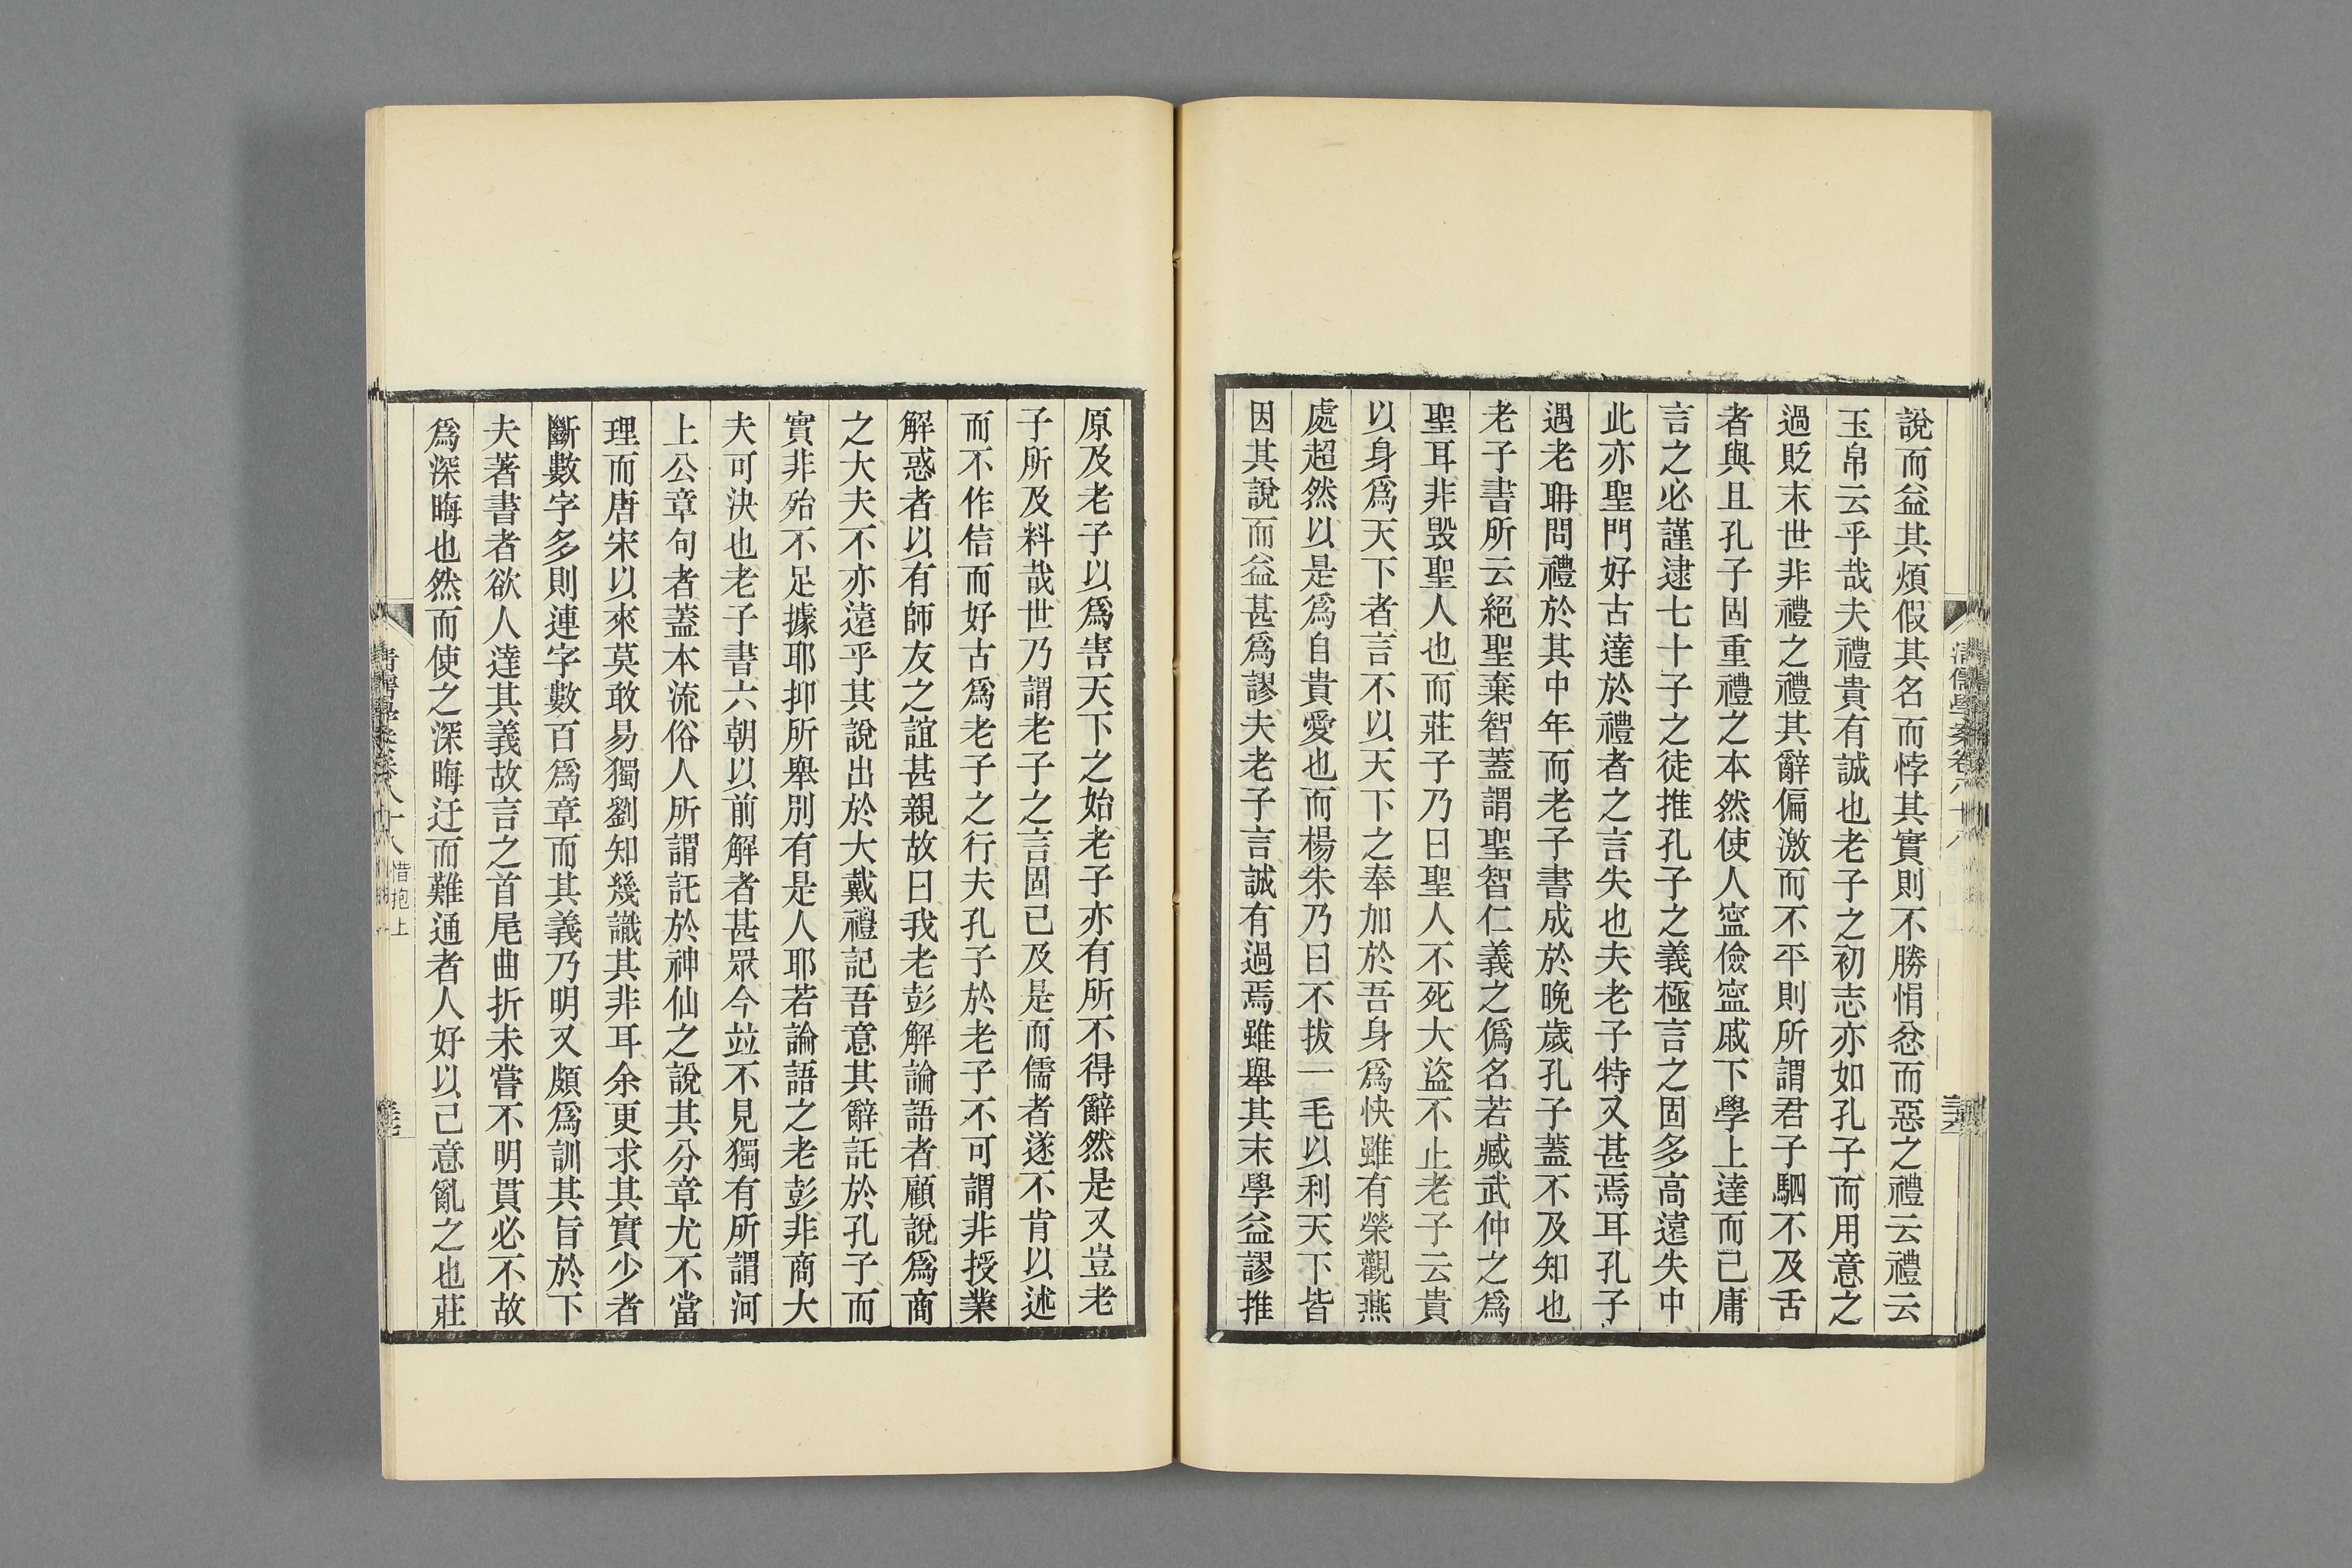 說而益其煩假其名而悖其實則不勝悁忿而惡之禮云禮云
玉帛云乎哉夫禮貴有誠也老子之初志亦如孔子而用意之
過貶末世非禮之禮其辭偏激而不平則所謂君子駟不及舌
者與且孔子固重禮之本然使人寍儉寍戚下學上達而已庸
言之必謹逮七十子之徒推孔子之義極言之固多高遠失中
此亦聖門好古達於禮者之言失也夫老子特又甚焉耳孔子
遇老耼問禮於其中年而老子書成於晚歲孔子蓋不及知也
老子書所云絕聖棄智蓋謂聖智仁義之僞名若臧武仲之爲
聖耳非毀聖人也而莊子乃曰聖人不死大盜不止老子云貴
以身爲天下者言不以天下之奉加於吾身爲快雖有榮觀燕
處超然以是爲自貴愛也而楊朱乃曰不拔一毛以利天下皆
因其說而益甚爲謬夫老子言誠有過焉雖舉其末學益謬推
清儒學案卷八十八
原及老子以爲害天下之始老子亦有所不得辭然是又豈老
子所及料哉世乃謂老子之言固已及是而儒者遂不肯以述
而不作信而好古爲老子之行夫孔子於老子不可謂非授業
解惑者以有師友之誼甚親故曰我老彭解論語者顧說爲商
之大夫不亦遠乎其說出於大戴禮記吾意其辭託於孔子而
實非殆不足據耶抑所舉別有是人耶若論語之老彭非商大
夫可決也老子書六朝以前解者甚眾今竝不見獨有所謂河
上公章句者蓋本流俗人所謂託於神仙之說其分章尤不當
理而唐宋以來莫敢易獨劉知幾識其非耳余更求其實少者
斷數字多則連字數百爲章而其義乃明又頗爲訓其旨於下
夫著書者欲人達其義故言之首尾曲折未嘗不明貫必不故
爲深晦也然而使之深晦迂而難通者人好以己意亂之也莊
惜抱上